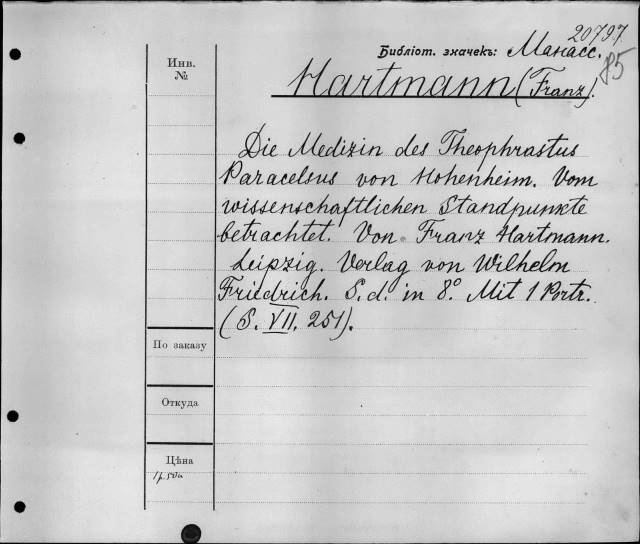 20797
Библіот. значекъ: Манасс.
85
Инв.
№
Hartmann (Franz).
Die Medizin des Theophrastus
Paracelsus von Hohenheim. Vom
wissenschaftlichen Standpunkte
betrachtet. Von Franz Hartmann.
Leipzig. Verlag von Wilhelm
Friedrich. S. d. in 8°. Mit 1 Portr.
(S. VII. 251).
По заказу
Откуда
Цѣна